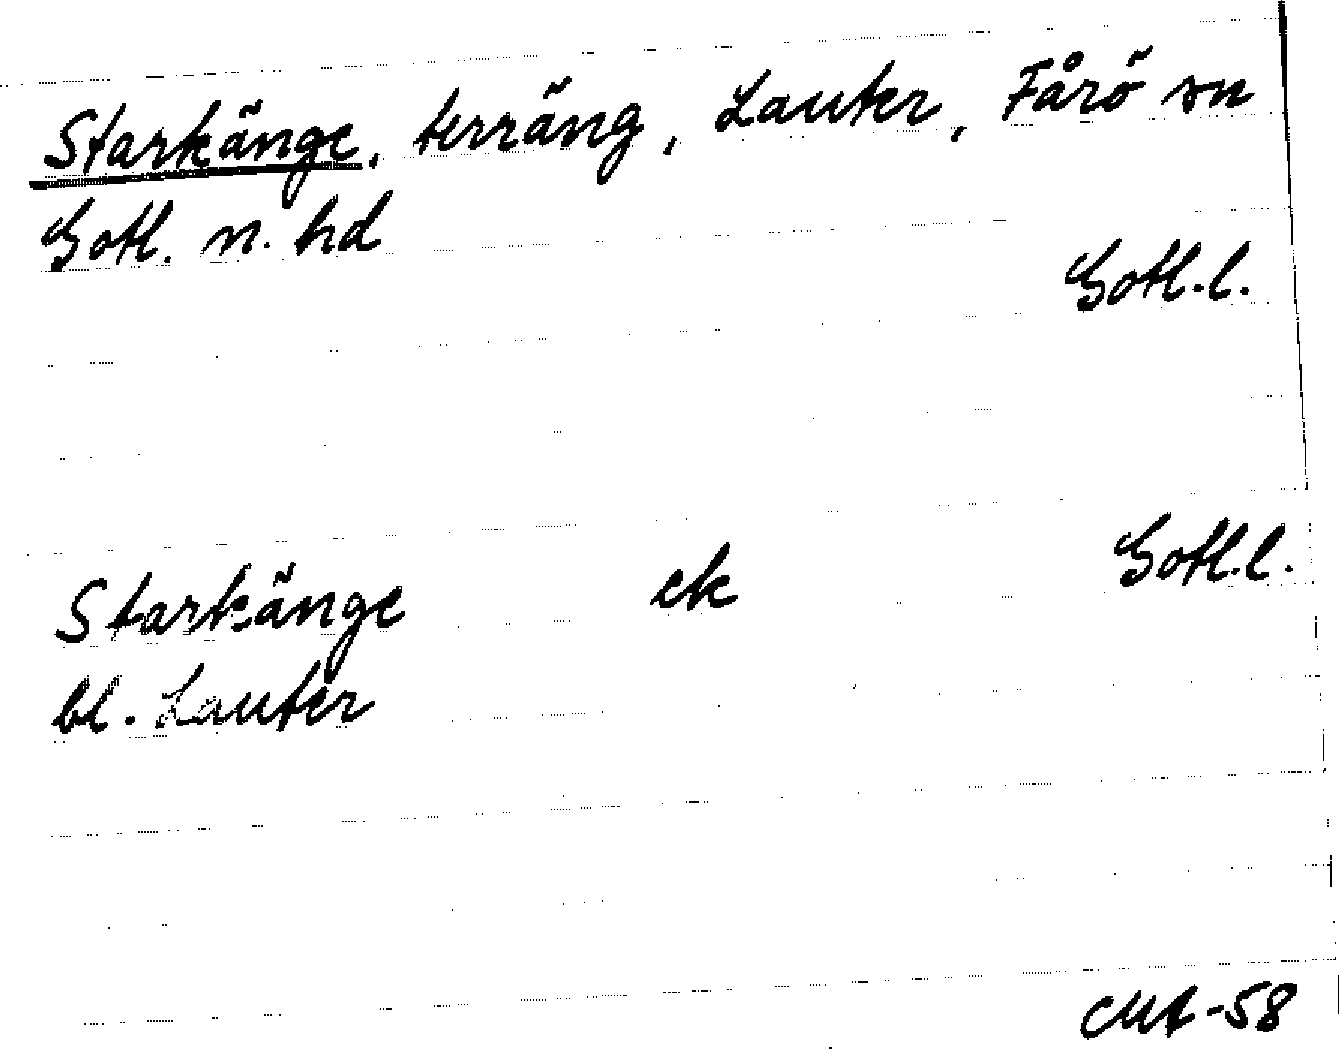 Starkänge, terräng, Lauter, Fårö sn
Gotl. n. hd
Gotl.l.
Starkänge ek Gotl.l.
bl. Lauter
-58